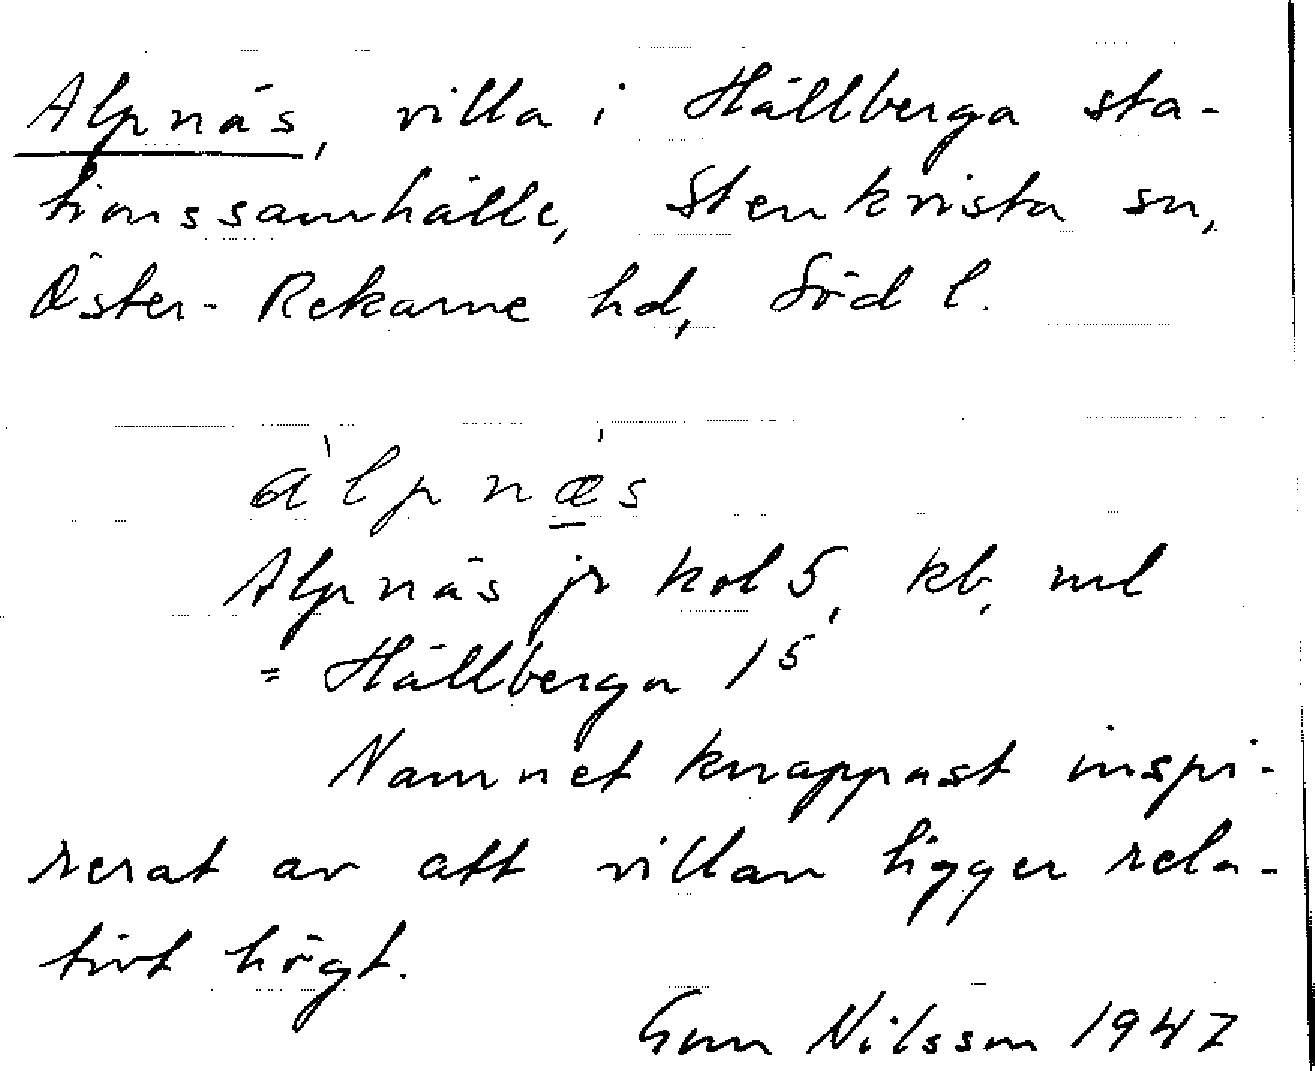 Alpnäs, villa i Hällberga sta-
tionssamhälle, Stenkvista sn,
Öster-Rekarne hd, Söd l.
àlpnǽ̠s
Alpnäs jr kol 5, kb, ml
= Hällberga 1⁵
Namnet knappast inspi-
rerat av att villan ligger rela-
tivt högt.
Gun Nilsson 1947